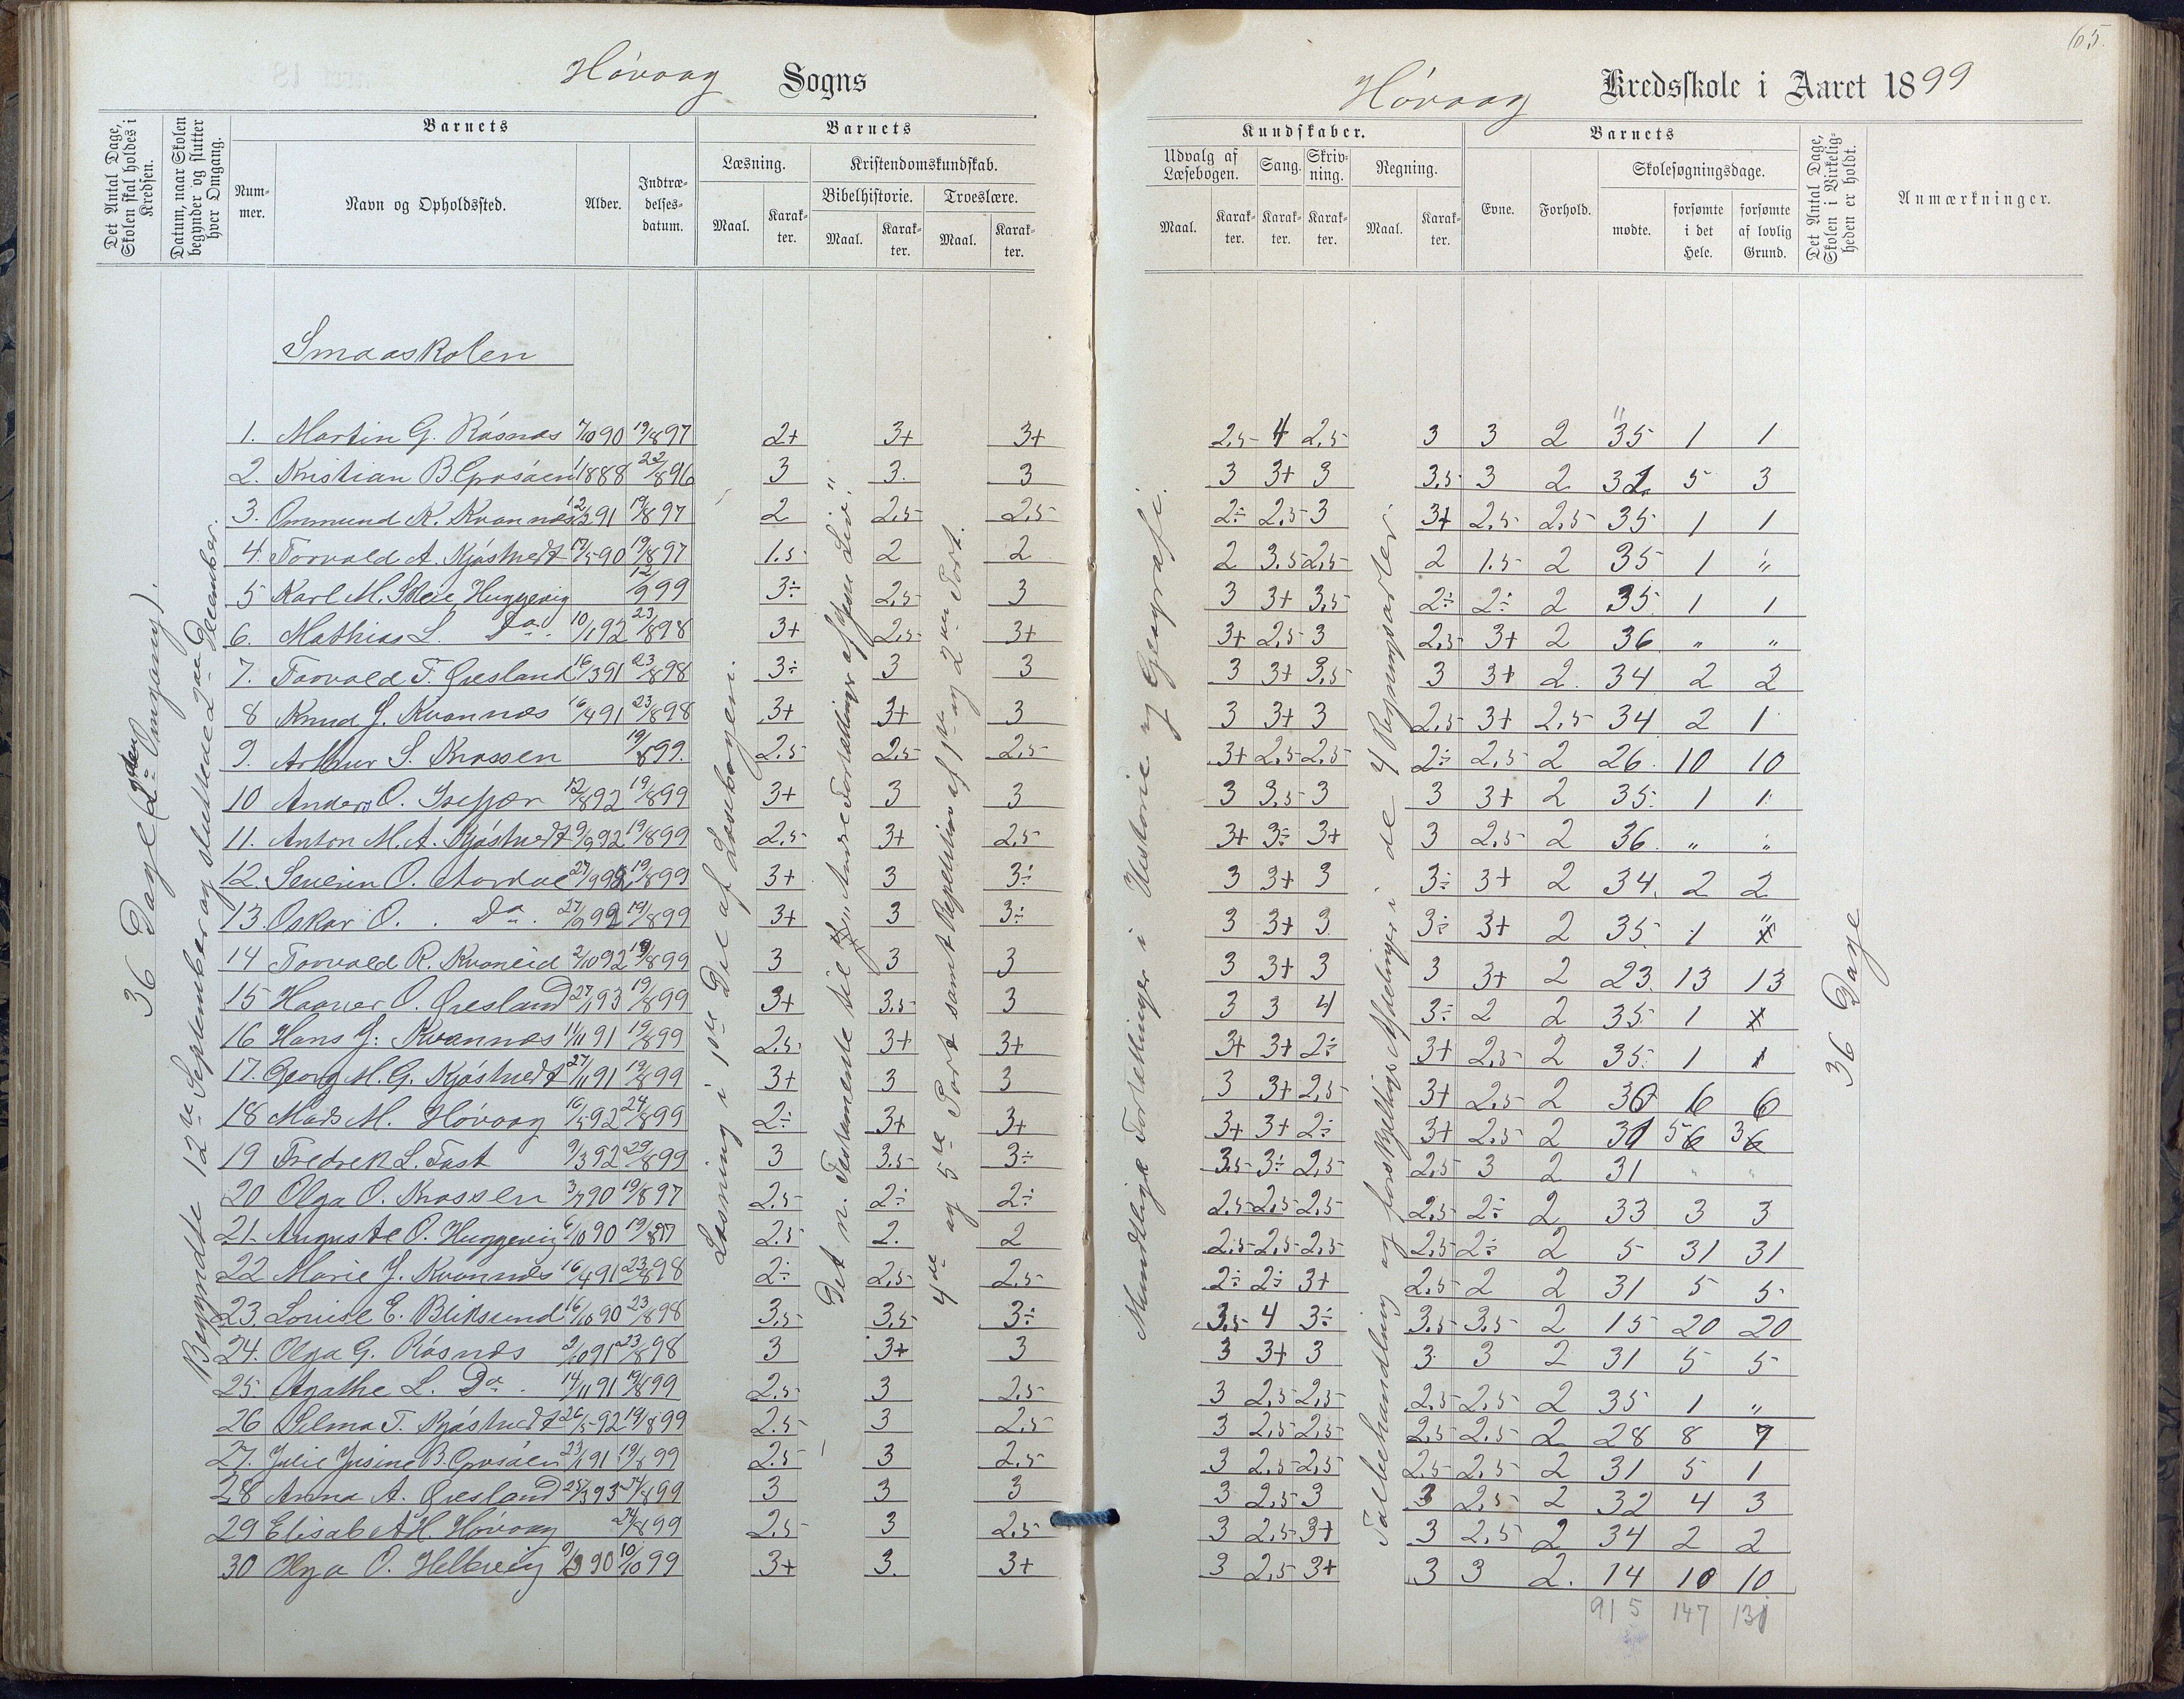 65.
Høvaag Sogns
Høvaag Kredsskole i Aaret 1899
Det Antal Dage, Skolen skal holdes i Kredsen.
Datum, naar Skolen begynder og slutter hver Omgang.
Barnets
Nummer.
Navn og Opholdssted.
Alder.
Indtrædelsesdatum.
Barnets
Læsning.
Maal.
Karakter.
Kristendomskundskab.
Bibelhistorie.
Maal.
Karakter.
Troeslære.
Maal.
Karakter.
Kundskaber.
Udvalg af Læsebogen.
Maal.
Karakter.
Sang.
Karakter.
Skrivning.
Karakter.
Regning.
Maal.
Karakter.
Barnets
Evne.
Forhold.
Skolesøgningsdage.
mødte.
forsømte i det Hele.
forsømte af lovlig Grund.
Det Antal Dage, Skolen i Virkeligheden er holdt.
Anmærkninger.
Smaaskolen
36 Dage (2den Omgang).
Begyndte 12te September og sluttede 2den December.
Læsning i 1ste Del af Læsebogen.
Det n. Testamente til "Andre Fortællinger af Jesu Liv."
4de og 5te Part samt Repetition af 1ste og 2den Part.
Mundtlige Fortællinger i Historie og Geografi.
Talbehandling og forskjellige Afdelinger i de 4 Regningsarter.
36 Dage
1. Martin G. Røsnes 7/10 90 19/8 97 2+ 3+ 3+ 2,5 4 2,5 3 3 2 35 1 1
2. Kristian B. 1888 22/8 96 3 3. 3 3 3+ 3 3,5 3 2 31 5 3
3. Ommund K. Kvannes 12/3 91 19/8 97 2 2,5 2,5 2÷ 2,5 3 3+ 2,5 2,5 35 1 1
4. Torvald A. Kjøstvedt 17/5 90 19/8 97 1.5 2 2 2 3.5 2,5 2 1.5 2 35 1 "
5 Karl M. Huggevig 12/9 99 3÷ 2,5 3 3 3+ 3,5 2÷ 2÷ 2 35 1 1
6. Mathias L. Do. 10/1 92 23/8 98 3+ 2,5 3+ 3+ 2,5 3 2,5 3+ 2 36 " "
7. Torvald T. Øresland 16/3 91 23/8 98 3÷ 3 3 3 3+ 3,5 3 3+ 2. 34 2 2
8 Knud J. Kvannes 16/4 91 23/8 98 3+ 3+ 3 3 3+ 3 2,5 3+ 2,5 34 2 1
9. Arthur S. Knassen 19/8 99. 2.5 2,5 2,5 3+ 2,5 2,5 2÷ 2,5 2 26. 10 10
10 Anders O. Isefjær 12/8 92 19/8 99 3+ 3 3 3 3,5 3 3 3+ 2 35. 1 1
11. Anton M. A. Kjøstvedt 9/9 92 19/8 99 2,5 3+ 2,5 3+ 3÷ 3+ 3 2,5 2 36. " "
12. Severin O. Aardal 27/9 92 19/8 99 3+ 3 3÷ 3 3+ 3 3÷ 3+ 2 34. 2 2
13. Oskar O. Do. 27/9 92 19/8 99 3+ 3 3÷ 3 3+ 3. 3÷ 3+ 2 35 1 "
14 Torvald R. Kvaneid 2/10 92 19/8 99 3 3 3 3 3+ 3 3 3+ 2 23. 13 13
15 Haaver O. Øresland 27/1 93 19/8 99 3+ 3,5 3 3 3 4 3÷ 2 2 35. 1
16 Hans J. Kvannes 11/11 91 19/8 99 2,5 3+ 3+ 3+ 3+ 2÷ 3+ 2,5 2 35. 1 1
17. Georg M. G. Kjøstvedt 27/11 91 19/8 99 3+ 3 3 3 3+ 2,5 3+ 2,5 2 30 6 6
18 Mads M. Høvaag 16/5 92 24/8 99 2÷ 3+ 3+ 3+ 3+ 2÷ 3+ 2,5 2 31 5 3
19 Fredrek L. Fast 9/3 92 29/8 99 3 3.5 3÷ 3.5 3÷ 2,5 2,5 3 2 31 " "
20 Olga O. Knassen 3/7 90 19/8 97 2.5 2÷ 2÷ 2,5 2,5 2,5 2,5 2÷ 2 33 3 3
21. Auguste O. Huggevig 6/10 90 19/8 97 2.5 2. 2 2,5 2,5 2,5 2,5 2÷ 2 5 31 31
22 Marie J. Kvannes 16/4 91 23/8 98 2÷ 2,5 2,5 2÷ 2÷ 3+ 2,5 2 2 31 5 5
23. Louise E. Bliksund 16/10 90 23/8 98 3,5 3,5 3÷ 3,5 4 3÷ 3,5 3,5 2 15 20 20
24. Olga G. Røsnes 2/10 91 23/8 98 3 3+ 3 3 3+ 3 3 3 2 31 5 5
25. Agathe L. Do. 14/11 91 19/8 99 2.5 3 2.5 3 2,5 2,5 2,5 2,5 2 35 1 "
26 Selma T. Kjøstvedt 26/5 92 19/8 99 2.5 3 2,5 3 2,5 2,5 2,5 2,5 2 28 8 7
27. Julie Jisine B. 23/1 91 19/8 99 2.5 3 2.5 3 2,5 2,5 2,5 2,5 2 31 5 1
28 Anna A. Øresland 25/3 93 24/8 99 3 3 3 3 2,5 3 3 2,5 2 32 4 3
29 Elisabet H. Høvaag 24/8 99 2,5 3 2,5 3 2,5 3+ 3 2,5 2 34 2 2
30 Olga O. Helbevig 9/3 90 10/10 99 3+ 3. 3+ 3 2,5 3+ 3 3 2. 14 10 10
915 147 131